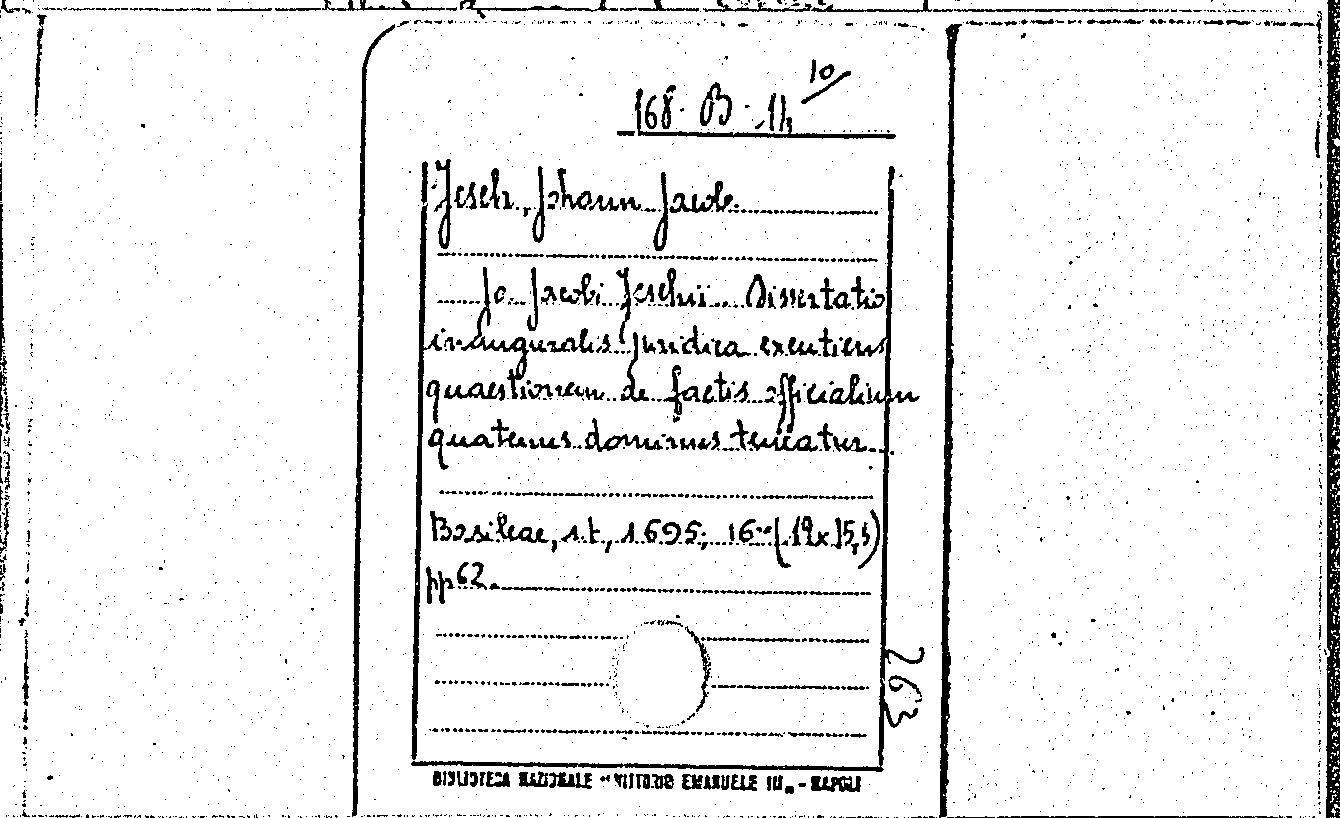 168. B. 14 10/
Jesch, Johann Jacob.
Jo. Jacobi Jeschii Dissertatio
inauguralis juridica excutiens
quaestionem de factis officialium
quatenus dominus teneatur
Basileae, s.t., 1695; 16° (19x15,5)
pp 62.
263
BIBLIOTECA NAZIONALE "VITTORIO EMANUELE III" - NAPOLI